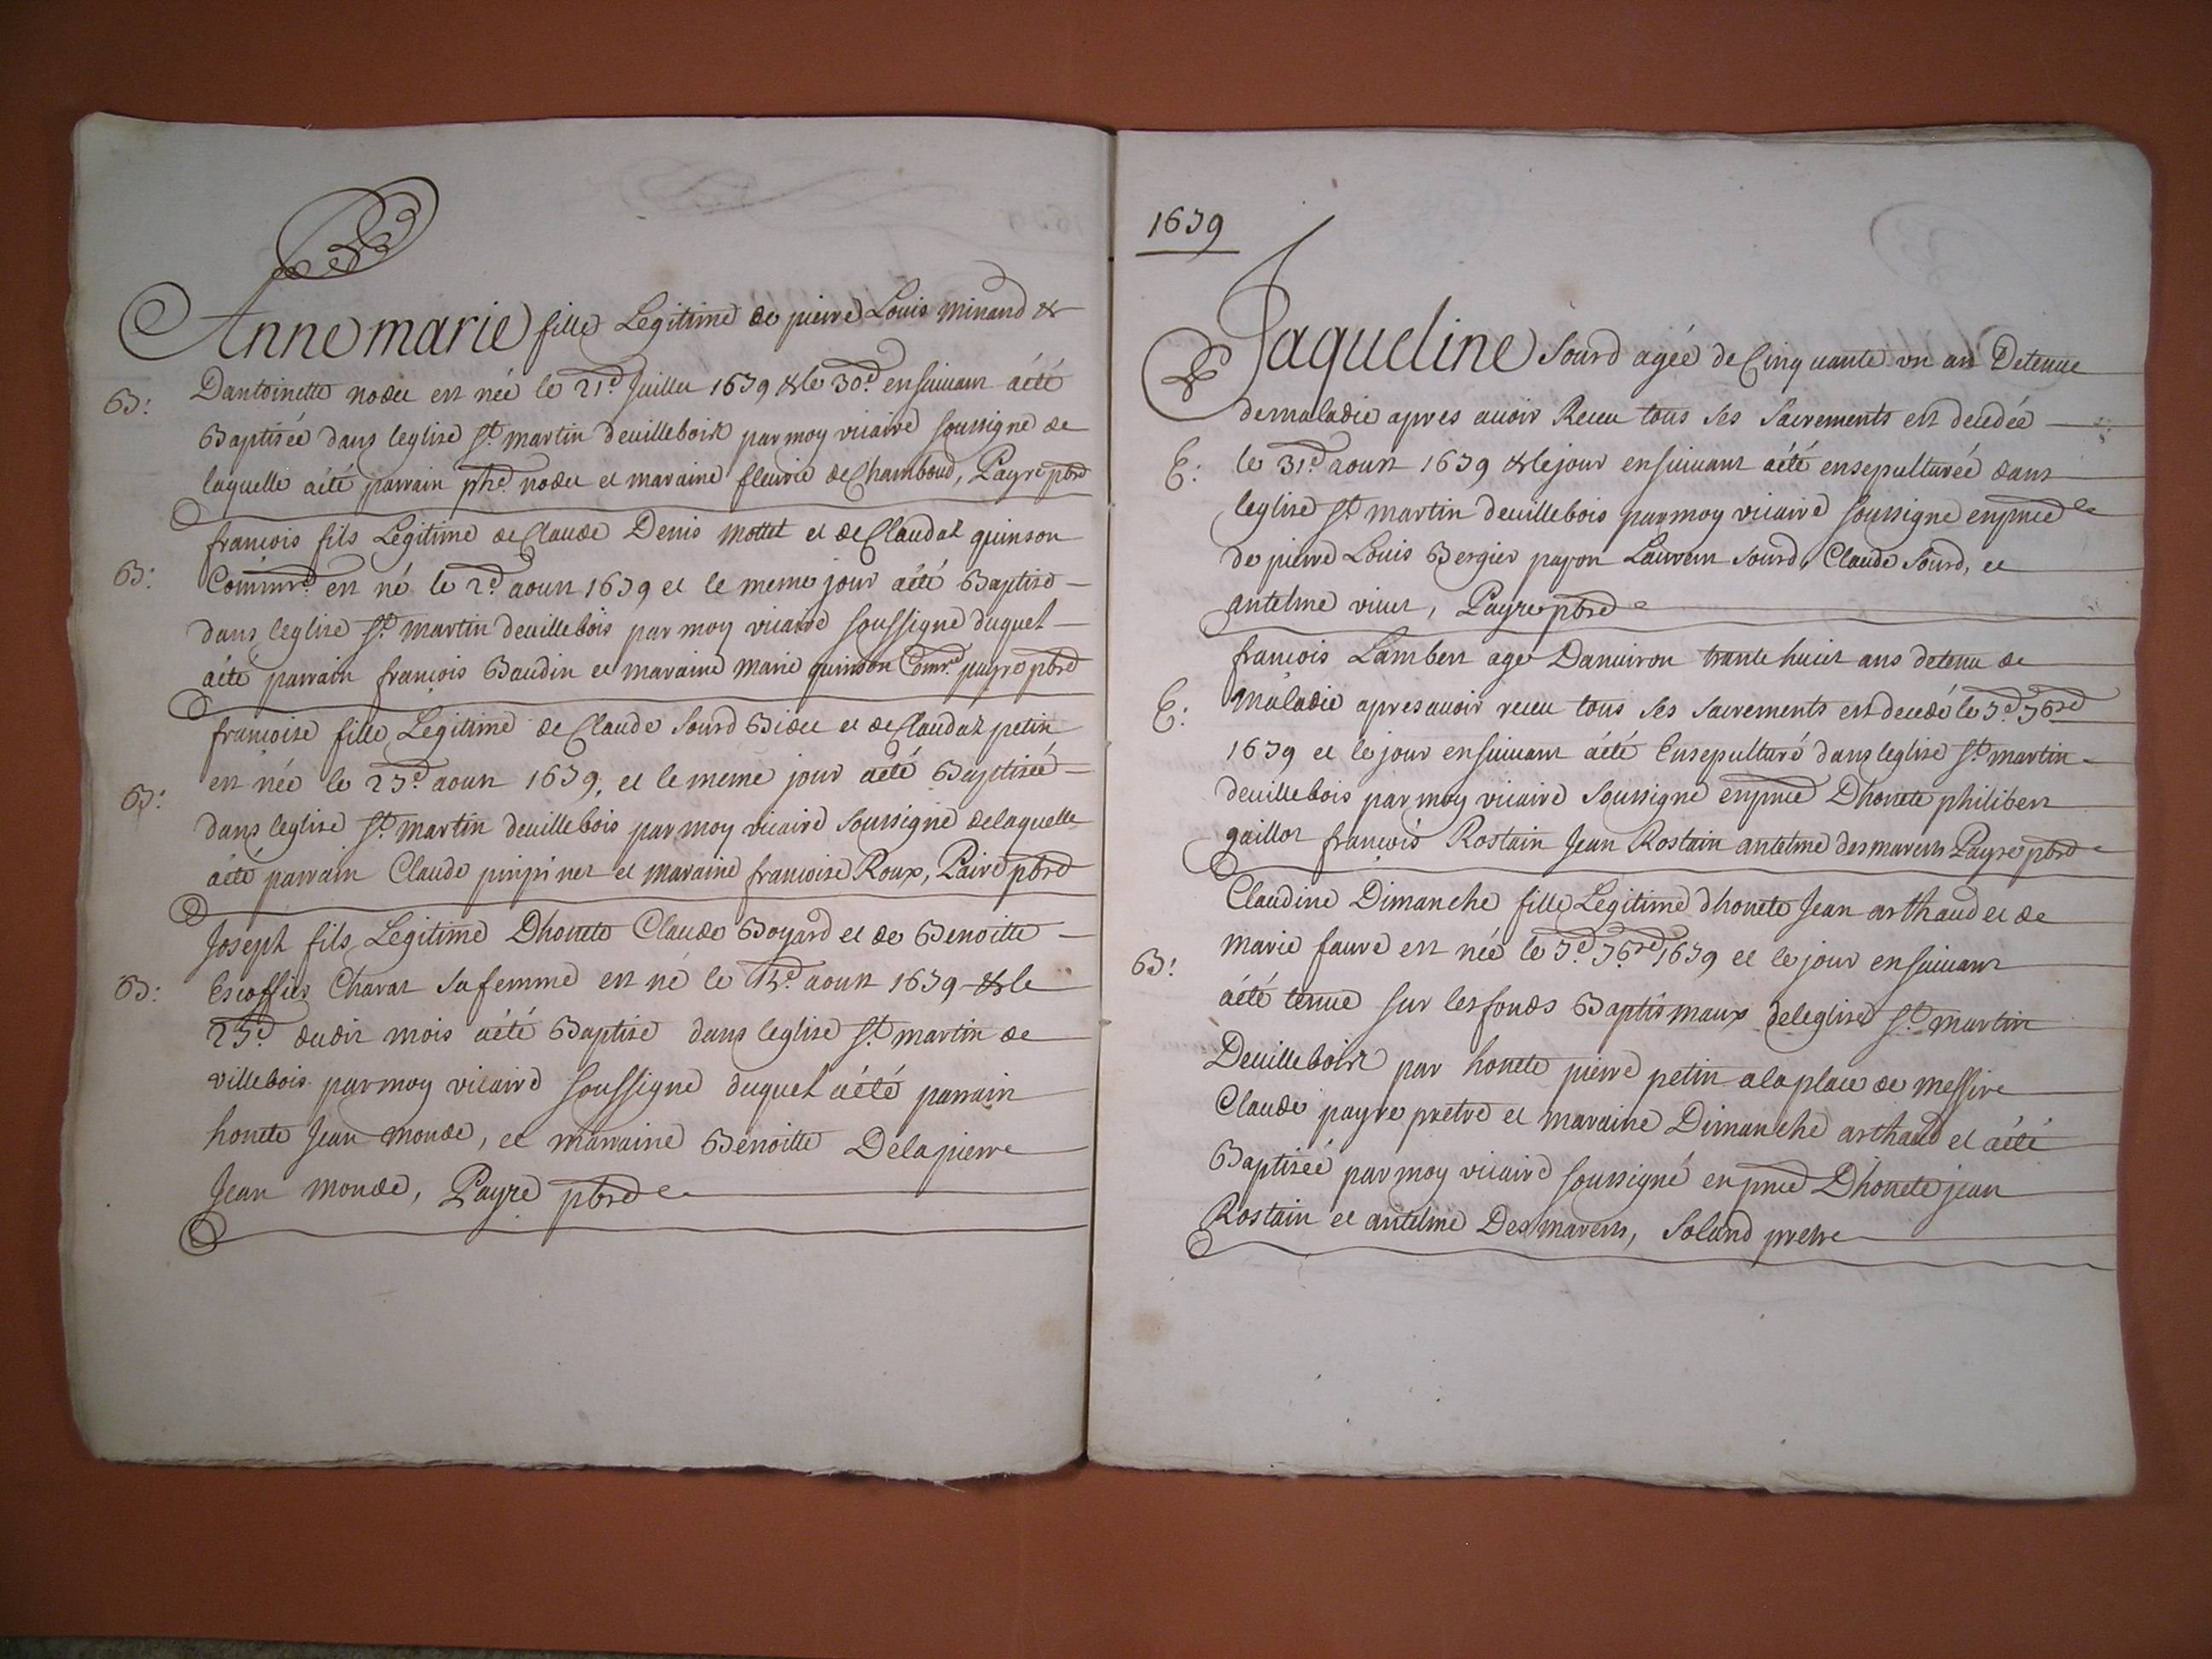 Anne marie fille Legitime de pierre Louis minand &
B: Dantoinette nodet est née le 21.d Juillet 1679 & le 30.d ensuivant aété
Baptisée dans leglise St martin devillebois par moy vicaire soussigne de
laquelle aété parrain phe. nodet et maraine fleurie de Chamboud, Payre pbre
francois fils Legitime de Claude Denis mottet et de Claudaz quinson
B: Commre. est né le 2.d aoust 1679 et le meme jour aété Baptise
dans leglise St. martin devillebois par moy vicaire soussigne duquel
aété parrain francois Baudin et maraine marie quinson Comre. payre pbre
francoise fille Legitime de Claude Sourd Bidet et de Claudaz petin
B: est née le 27.d aoust 1679, et le meme jour aété Baptisée
dans leglise St. martin devillebois par moy vicaire soussigne delaquelle
aété parrain Claude pinpinet et maraine francoise Roux, Paire pbre
Joseph fils Legitime Dhonete Claude Boyard et de Benoitte
B: Escoffier Charat sa femme est né le aoust 1679 & le
27.d dudit mois aété Baptise dans leglise St. martin de
villebois par moy vicaire soussigne duquel aété parrain
honete Jean monde, et marraine Benoitte Delapierre
Jean monde, Payre pbre
1679
Jaqueline Sourd agée de Cinquante un an Detenue
demaladie apres avoir Receu tous ses Sacrements est decedée
E: le 31.d aoust 1679 & le jour ensuivant aété ensepulturée dans
leglise St martin devillebois par moy vicaire soussigne enpnce
de pierre Louis Bergier payon Laurent Sourd, Claude Sourd, et
antelme vivet, Payre pbre
francois Lambert age Danviron trante huict ans detenu de
E: Maladie apres avoir receu tous ses Sacrements est decedé le 7.d 7bre
1679 et le jour ensuivant aété Ensepulturé dans leglise St martin
devillebois par moy vicaire Soussigne enpnce Dhonete philibert
gaillot francois Rostain Jean Rostain antelme desmarets Payre pbre
Claudine Dimanche fille Legitime dhonete Jean arthaud et de
B: marie favre est née le 7.d 7bre 1679 et le jour ensuivant
aété tenue sur lesfonds Baptismaux deleglise St. martin
Devillebois par honete pierre petin alaplace de messire
Claude payre pretre et maraine Dimanche arthaud et aété
Baptisée par moy vicaire soussigné en pnce Dhonete jean
Rostain et antelme Desmarets, Soland pretre